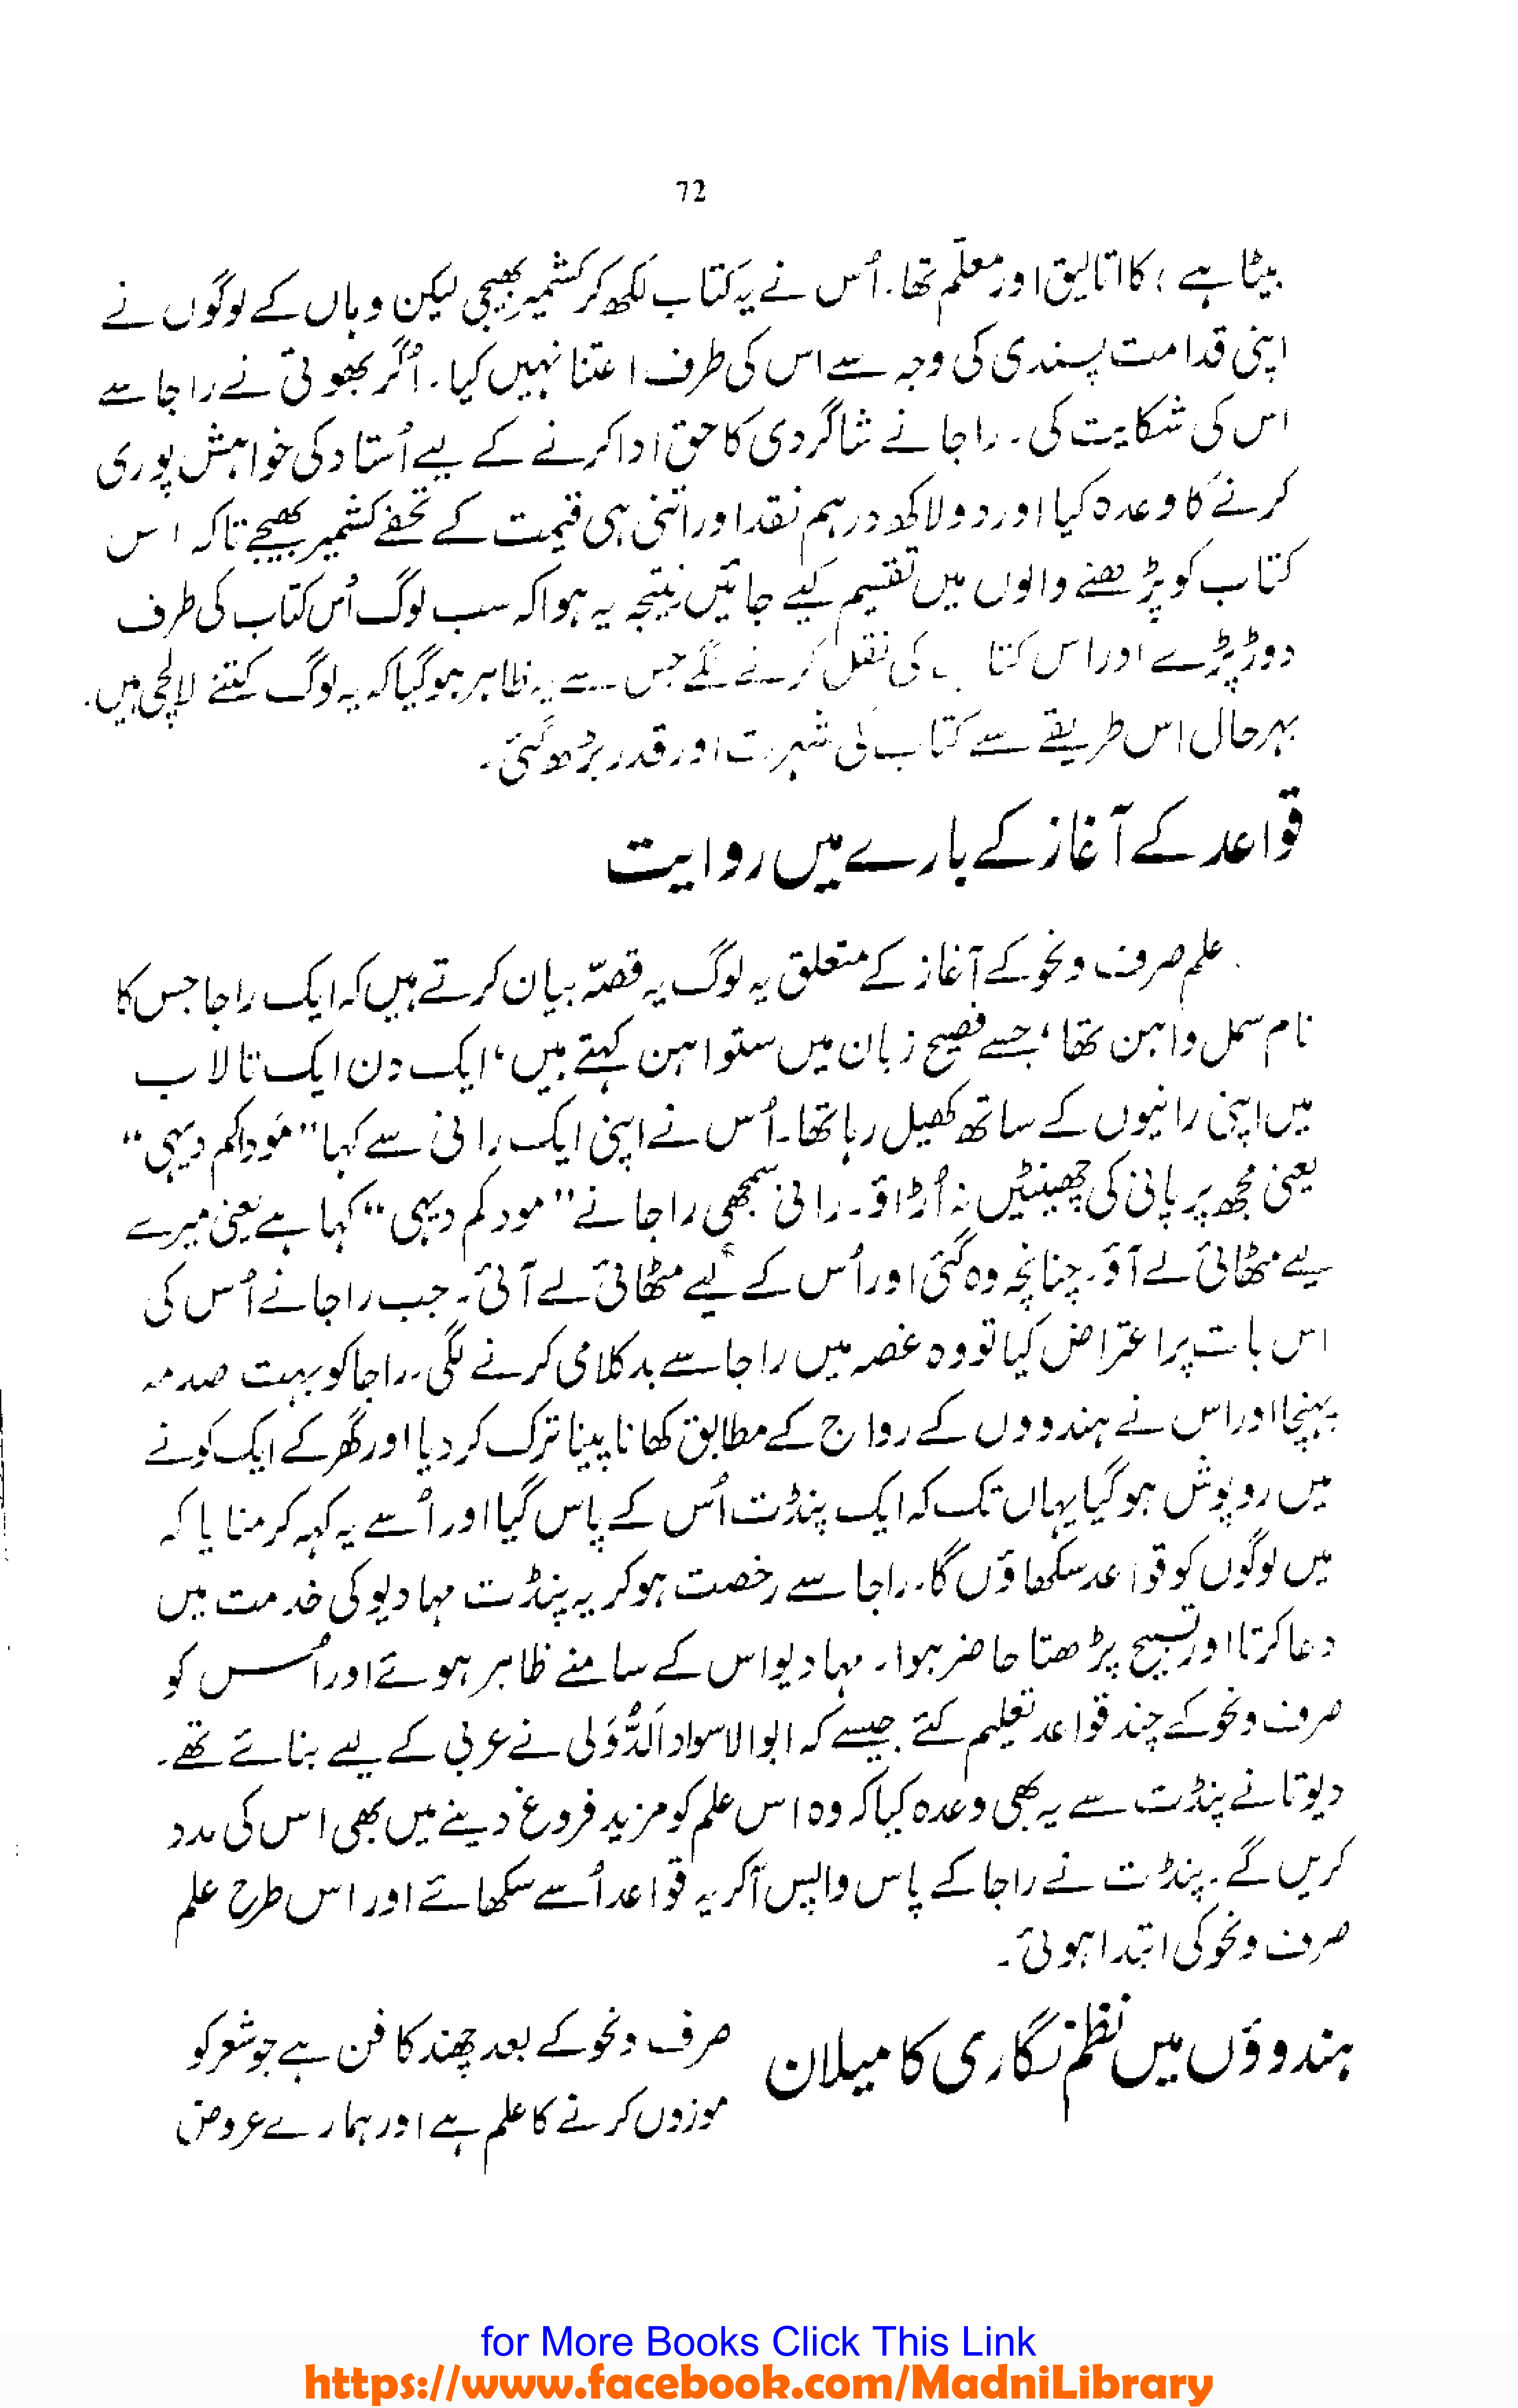 72
بیٹا ہے ؛ کا اتالیق اور معلّم تھا۔ اُس نے یہ کتاب لکھ کر کشمیر بھیجی لیکن وہاں کے لوگوں نے
اپنی قدامت پسندی کی وجہ سے اس کی طرف اعتنا نہیں کیا۔ اُگر بھوتی نے راجا سے
اس کی شکایت کی۔ راجا نے شاگردی کا حق ادا کرنے کے لیے اُستاد کی خواہش پوری
کرنے کا وعدہ کیا اور دو لاکھ درہم نقد اور اتنی ہی قیمت کے تحفے کشمیر بھیجے تاکہ اس
کتاب کو پڑھنے والوں میں تقسیم کیے جائیں نتیجہ یہ ہوا کہ سب لوگ اُس کتاب کی طرف
دوڑ پڑے اور اس کتاب کی نقل کرنے لگے جس سے یہ ظاہر ہو گیا کہ یہ لوگ کتنے لالچی ہیں۔
بہرحال اس طریقے سے کتاب کی شہرت اور قدر بڑھ گئی۔
قواعد کے آغاز کے بارے میں روایت
علم صرف و نحو کے آغاز کے متعلق یہ لوگ یہ قصّہ بیان کرتے ہیں کہ ایک راجا جس کا
نام سمل واہن تھا، جسے فصیح زبان میں ستواہن کہتے ہیں، ایک دن ایک تالاب
میں اپنی رانیوں کے ساتھ کھیل رہا تھا۔ اُس نے اپنی ایک رانی سے کہا "مَوداکم دیہی"
یعنی مجھ پر پانی کی چھینٹیں نہ اُڑاؤ۔ رانی سمجھی راجا نے "مودکم دیہی" کہا ہے یعنی میرے
لیے مٹھائی لے آؤ۔ چنانچہ وہ گئی اور اُس کے لیے مٹھائی لے آئی۔ جب راجا نے اُس کی
اس بات پر اعتراض کیا تو وہ غصہ میں راجا سے بدکلامی کرنے لگی۔ راجا کو بہت صدمہ
پہنچا اور اس نے ہندووں کے رواج کے مطابق کھانا پینا ترک کر دیا اور گھر کے ایک کونے
میں روپوش ہو گیا یہاں تک کہ ایک پنڈت اُس کے پاس گیا اور اُسے یہ کہہ کر منایا کہ
میں لوگوں کو قواعد سکھاؤں گا۔ راجا سے رخصت ہو کر یہ پنڈت مہادیو کی خدمت میں
دعا کرتا اور تسبیح پڑھتا حاضر ہوا۔ مہادیو اس کے سامنے ظاہر ہوئے اور اُس کو
صرف و نحو کے چند قواعد تعلیم کئے جیسے کہ ابوالاسواد اَلدُّوَلی نے عربی کے لیے بنائے تھے۔
دیوتا نے پنڈت سے یہ بھی وعدہ کیا کہ وہ اس علم کو مزید فروغ دینے میں بھی اس کی مدد
کریں گے۔ پنڈت نے راجا کے پاس واپس آکر یہ قواعد اُسے سکھائے اور اس طرح علم
صرف و نحو کی ابتدا ہوئی۔
ہندوؤں میں نظم نگاری کا میلان
صرف و نحو کے بعد چھند کا فن ہے جو شعر کو
موزوں کرنے کا علم ہے اور ہمارے عروض
for More Books Click This Link
https://www.facebook.com/MadniLibrary